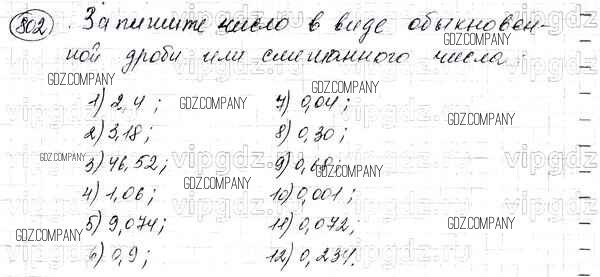 802. Запишите число в виде обыкновен-
ной дроби или смешанного числа:
1) 2,4; 7) 0,04;
2) 3,18; 8) 0,30;
3) 46,52; 9) 0,60;
4) 1,06; 10) 0,001;
5) 9,074; 11) 0,072;
6) 0,9; 12) 0,234.
GDZ.COMPANY
GDZ.COMPANY
GDZ.COMPANY
GDZ.COMPANY
GDZ.COMPANY
GDZ.COMPANY
GDZ.COMPANY
GDZ.COMPANY
GDZ.COMPANY
GDZ.COMPANY
GDZ.COMPANY